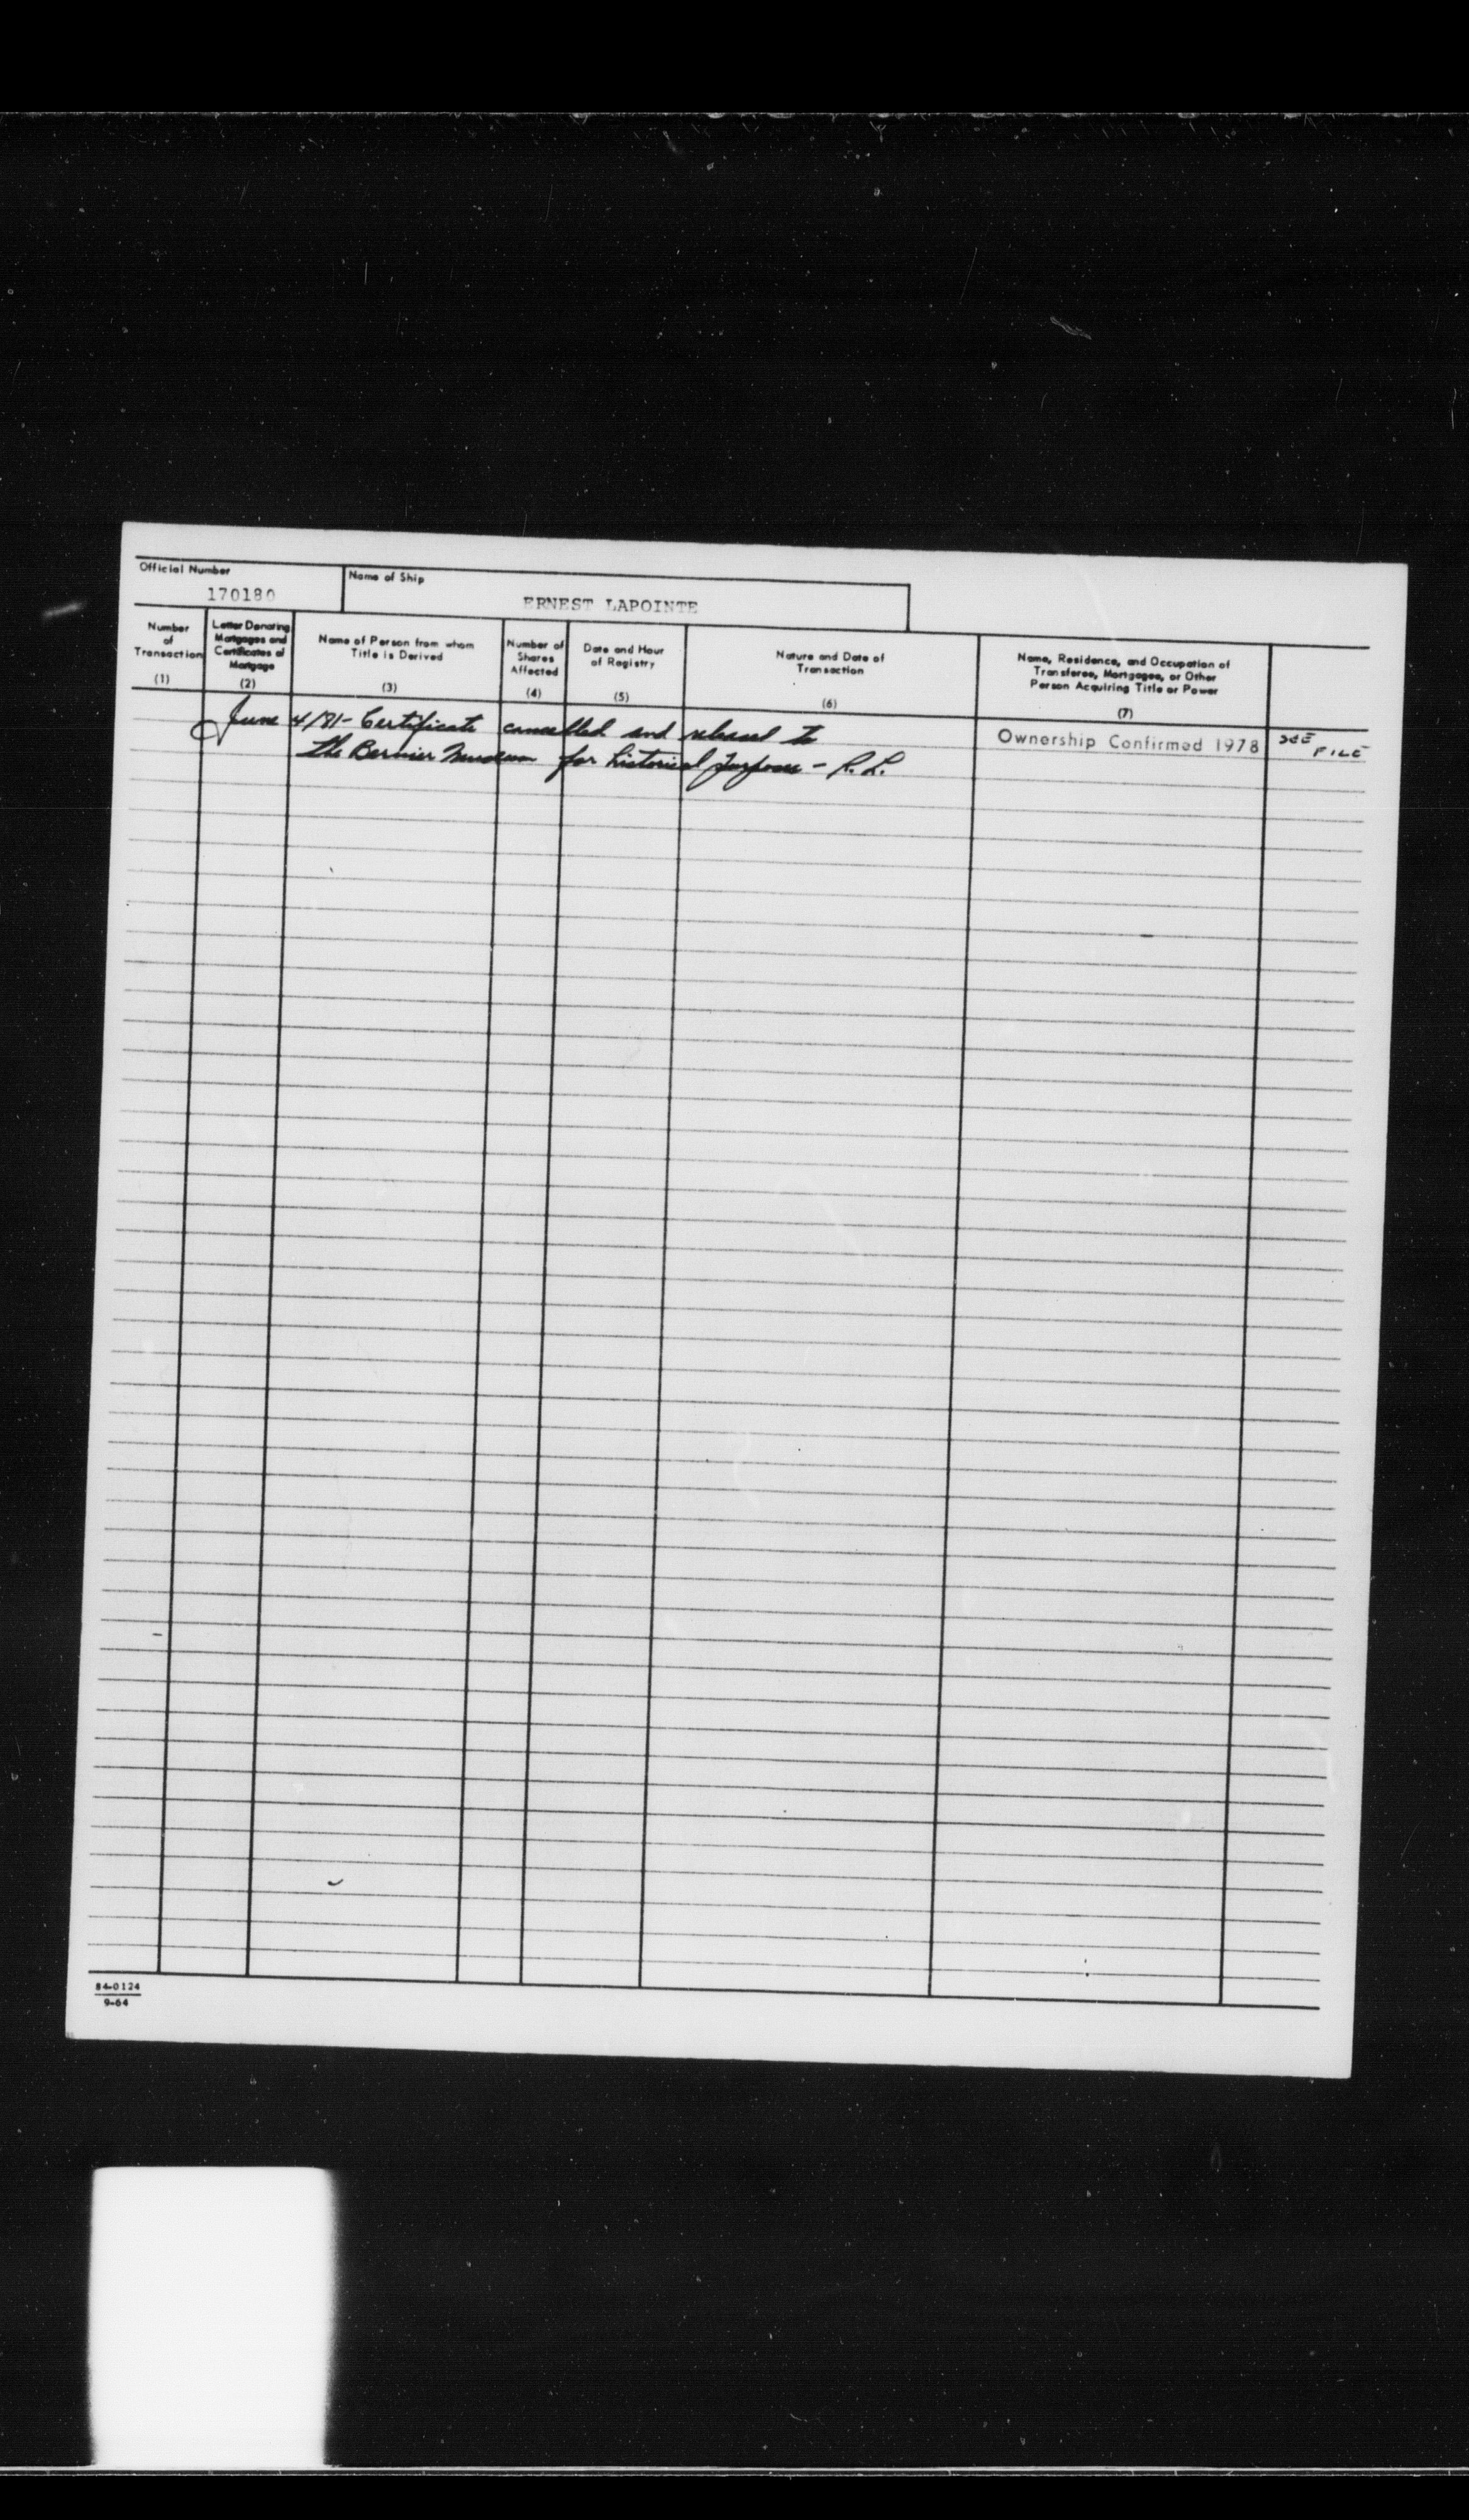 Official Number
170180
Name of Ship
ERNEST LAPOINTE
Number
of
Transaction
(1)
Letter Denoting
Mortgages and
Certificates of
Mortgage
(2)
Name of Person from whom
Title is Derived
(3)
Number of
Shares
Affected
(4)
Date and Hour
of Registry
(5)
Nature and Date of
Transaction
(6)
Name, Residence, and Occupation of
Transferee, Mortgagee, or Other
Person Acquiring Title or Power
(7)
June 4/81 - Certificate cancelled and released to
the Bernier Museum for historical purposes - R. L.
Ownership Confirmed 1978
SEE
FILE
84-0124
9-64